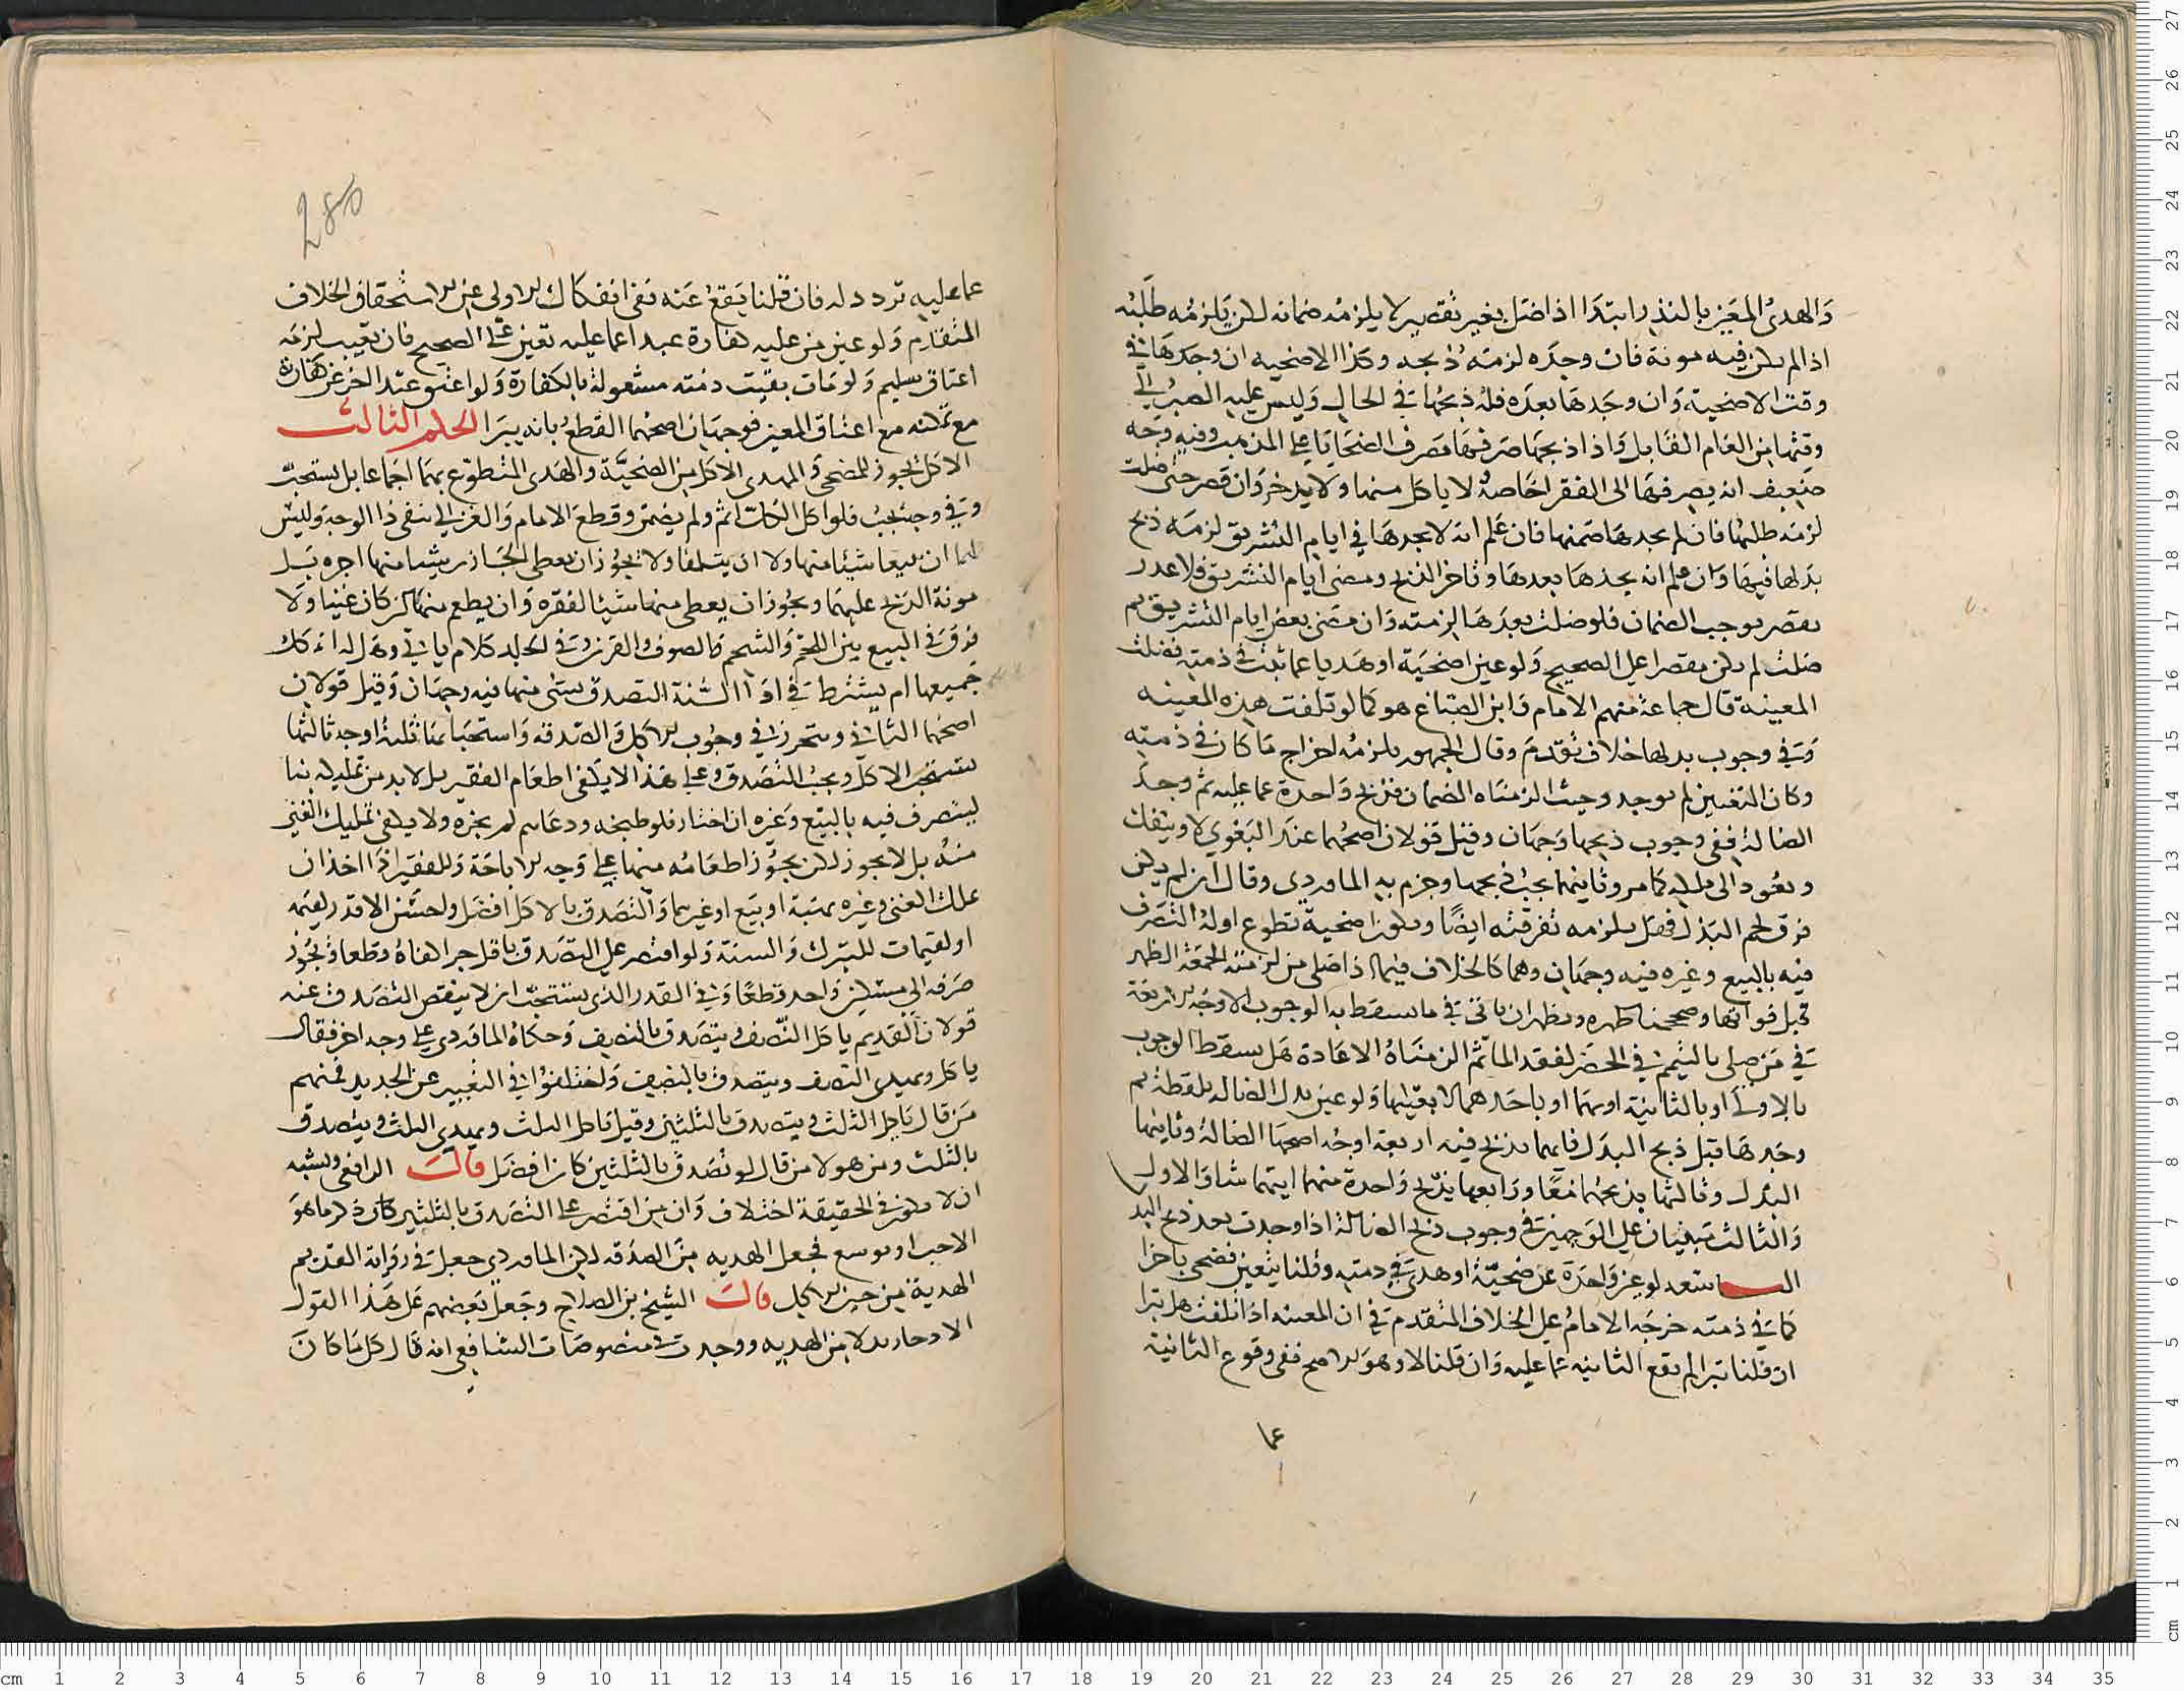 والهدى المعين بالنذر ابتدا اذا ضل بغير تقصير لا يلزمه ضمانه لكن يلزمه طلبه
اذا لم يكن فيه مونة فان وجده لزمته ذبحه وكذا الاضحيه ان وجدها في
وقت الاضحية وان وجدها بعده فله ذبحها في الحال وليس عليه الصبر الى
وقتها من العام القابل واذا ذبحها صرفها مصرف الضحايا على المذهب وفيه وجه
ضعيف انه يصرفها الى الفقرا خاصة لا ياكل منها ولا يدخر وان قصر حتى ضلت
لزمه طلبها فان لم يجدها ضمنها فان علم انه لا يجدها في ايام التشريق لزمه ذبح
بدلها فيها وان علم انه يجدها بعدها وتاخر الذبح ومضى ايام التشريق فلا عذر
تقصر يوجب الضمان فلو ضلت بعدها لزمته وان مضى بعض ايام التشريق ثم
ضلت لم يكن مقصرا على الصحيح ولو عين اضحية او هديا عما ثبت في ذمته فضلت
المعينة قال جماعة منهم الامام وابن الصباغ هو كما لو تلفت هذه المعينه
وفي وجوب بدلها خلاف تقدم وقال الجمهور يلزمه اخراج ما كان في ذمته
وكان التعيين لم يوجد وحيث الزمناه الضمان فذبح واحدة عما عليه ثم وجد
الضالة ففي وجوب ذبحها وجهان وقيل قولان اصحهما عند البغوي لا وينفك
ويعود الى ملكه كما مر وثانيهما يجب ذبحها وجزم به الماوردي وقال ان لم يكن
فرق لحم البدل فهل يلزمه تفرقته ايضا ويكون اضحية تطوع او له التصرف
فيه بالبيع وغيره فيه وجهان وهما كالخلاف فيما اذا صلى من لزمته الجمعة الظهر
قبل فواتها وصححنا ظهره ويظهر ان ياتي في ما يسقط به الوجوب الاوجه الاربعة
في من صلى بالتيمم في الحضر لفقد الما ثم الزمناه الاعادة هل يسقط الوجوب
بالاولى او بالثانية او بهما او باحدهما لا بعينها ولو عين بدل الضاله بلفظه ثم
وجدها قبل ذبح البدل فايهما يذبح فيه اربعة اوجه اصحها الضالة وثانيها
البدل وثالثها يذبحهما معا ورابعها يذبح واحدة منهما ايتهما شا والاول
والثالث مبنيان على الوجهين في وجوب ذبح الضالة اذا وجدت بعد ذبح البدل
لو عين واحدة عن ضحية او هدى في ذمته وقلنا يتعين فضحى باخرا
كما في ذمته خرجه الامام على الخلاف المتقدم في ان المعينه اذا تلفت هل تبرا
ان قلنا تبرا لم تقع الثانيه عما عليه وان قلنا لا وهو الاصح ففي وقوع الثانية
عما
280
عما عليه تردد له فان قلنا تقع عنه ففي انفكاك الاولى عن الاستحقاق الخلاف
المتقدم ولو عين من عليه كفارة عبدا عما عليه تعين على الصحيح فان تعيب لزمه
اعتاق سليم ولو مات بقيت ذمته مشغولة بالكفارة ولو اعتق عبدا اخر عن كفارة
مع تمكنه مع اعتاق المعين فوجهان اصحهما القطع بانه يبرا الحكم الثالث
الاكل يجوز للمضحي والمهدي الاكل من الضحية والهدى المتطوع بهما اجماعا بل يستحب
وفي وجه يجب فلو اكل الكل اثم ولم يضمن وقطع الامام والغزالي ينفي ذا الوجه وليس
لهما ان يبيعا شيئا منها ولا ان يتلفا ولا يجوز ان يعطى الجزار شيا منها اجره بل
مونة الذبح عليهما ويجوز ان يعطى منها شيئا لفقره وان يطعم منها لمن كان غنيا ولا
فرق في البيع بين اللحم والشحم والصوف والقرن وفي الجلد كلام ياتي وهل له اكل
جميعها ام يشترط في ادا السنة التصدق بشى منها فيه وجهان وقيل قولان
اصحهما الثاني ويتحرر في وجوب الاكل والصدقه واستحبابهما ثلثة اوجه ثالثها
يستحب الاكل ويجب التصدق وعلى هذا لا يكفي اطعام الفقير بل لا بد من تمليكه نيا
ليتصرف فيه بالبيع وغيره ان اختار فلو طبخه ودعاهم لم يجزه ولا يكفي تمليك الغني
منه بل لا يجوز لكن يجوز اطعامه منها على وجه الاباحة وللفقير اذا اخذ ان
يملك الغني وغيره بهبة او بيع او غيرهما والتصدق بالاكل افضل واحسن الاقدر لقمة
او لقيمات للتبرك والسنة ولو اقتصر على التصدق باقل جزء كفاه قطعا ويجوز
صرفه الى مسكين واحد قطعا وفي القدر الذي يستحب ان لا ينقص التصدق عنه
قولان القديم ياكل النصف ويتصدق بالنصف وحكاه الماوردي على وجه اخر فقال
ياكل ويهدي النصف ويتصدق بالنصف واختلفوا في التعبير عن الجديد فمنهم
من قال ياكل الثلث ويتصدق بالثلثين وقيل ياكل الثلث ويهدي الثلث ويتصدق
بالثلث ومن هولا من قال لو تصدق بالثلثين كان افضل قالت الرافعي ويشبه
ان لا يكون في الحقيقة اختلاف وان من اقتصر على التصدق بالثلثين كان ذكر ما هو
الاحب او توسع فجعل الهديه من الصدقه لكن الماوردي جعل في رواية القديم
الهدية من حيز الاكل قالت الشيخ بن الصلاح وجعل بعضهم على هذا القول
الادخار بدلا من الهديه ووجدت في منصوصات الشافعي انه قال كل ما كان